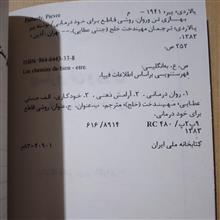 پالاردی، پیر، ۱۹۴۱ - م
Pallardy, Pierre
بهسازی تن و روان روشی قاطع برای خود درمانی / نوشته پیر
پالاردی؛ ترجمان مهیندخت خلج (جنتی عطایی). -- تهران: آدین،
۱۳۸۳.
۲۵۲ ص.
ISBN: 964-6443-33-8
Les chemins du bien - etre.
ص. ع. به‌انگلیسی:
فهرستنویسی براساس اطلاعات فیپا.
۱. روان درمانی. ۲. آرامش ذهنی. ۳. خودکاری. الف. جنتی
عطایی، مهیندخت (خلج)، مترجم. ب. عنوان. ج. عنوان: روشی قاطع
برای خود درمانی.
۶۱۶ / ۸۹۱۴
RC ۴۸۰ / پ۲ب۹
۱۳۸۳
۸۳-۲۰۹۰۱م
کتابخانه ملی ایران